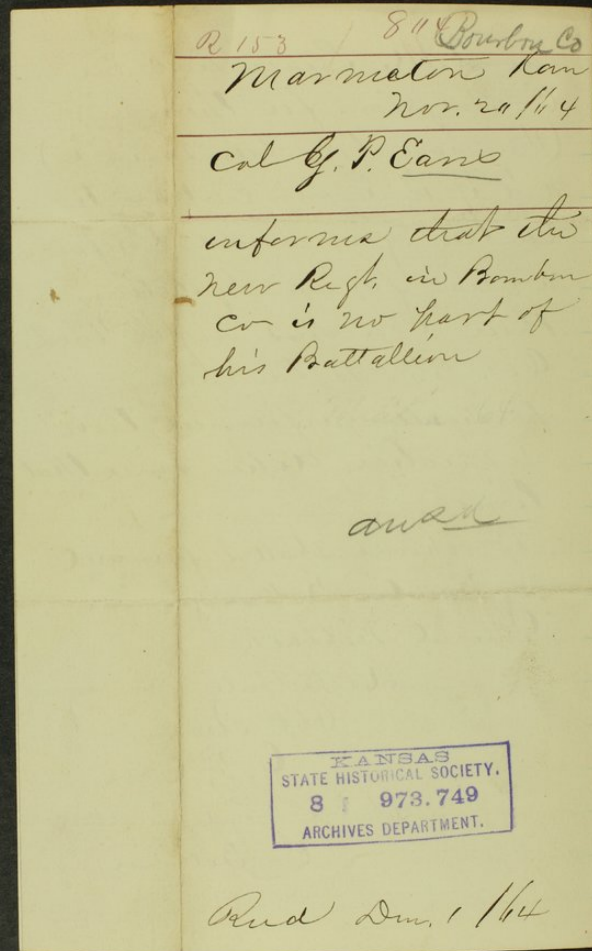 R 153 8 " Bourbon Co
Marmaton Kan
Nov. 20 / 64
Col G. P. Eaves
informs that the
new Regt. in Bourbon
Co is no part of
his Battallion
Ansd
KANSAS
STATE HISTORICAL SOCIETY.
8 973.749
ARCHIVES DEPARTMENT.
Recd Dec. 1 /64